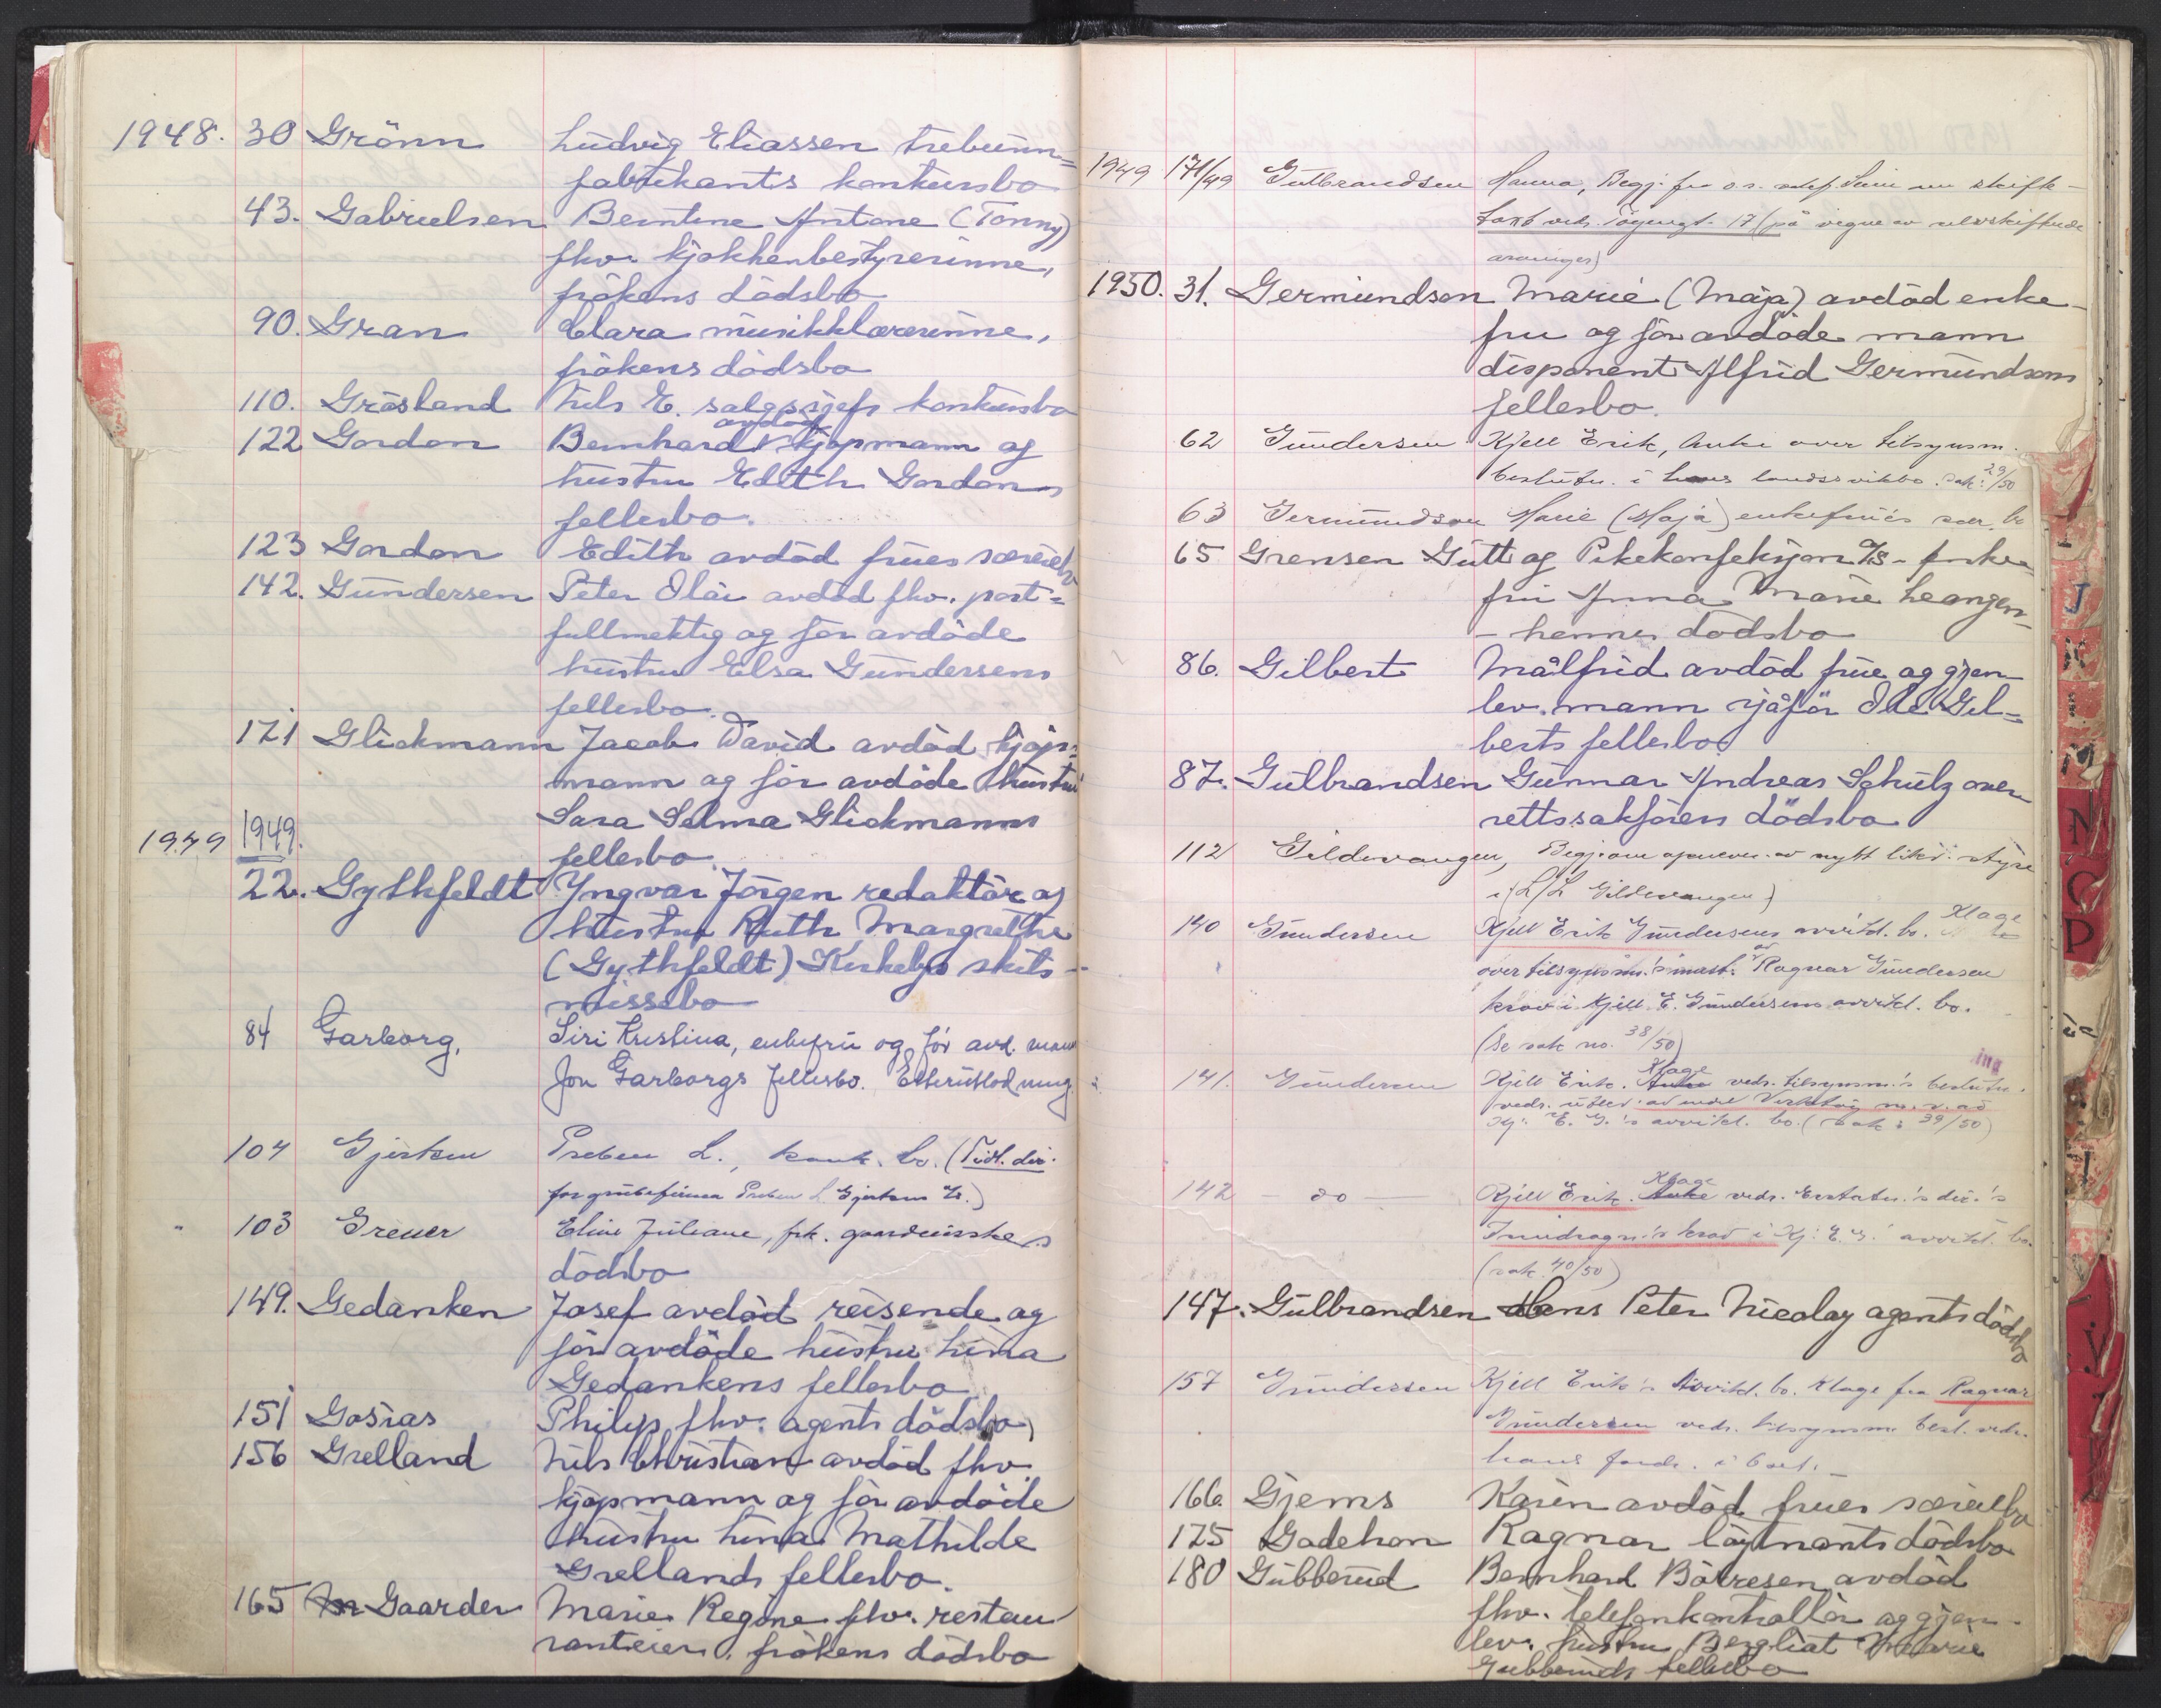 1948. 30 Grönn Ludvig Eliassen trebunn=
fabrikants konkursbo
43. Gabrielsen Berntine Antone (Tonny)
fhv. kjøkkenbestyrerinne,
frökens dödsbo
90. Gran Clara musikklærerinne,
frökens dödsbo
110. Grösland Nils E. salgssjefs konkursbo
avdöd
122 Gordon Bernhard kjøpmann og
hustru Edith Gordons
fellesbo.
123 Gordon Edith avdöd frues særeiebo
142. Gundersen Peter Olai avdöd fhv. post=
fullmektig og för avdöde
hustru Elsa Gundersens
fellesbo.
171 Glickmann Jacob David avdöd kjøp=
mann og för avdöde hustru
Sara Selma Glickmanns
1949 1949.
fellesbo.
22. Gythfeldt Yngvar Jörgen redaktör og
hustru Ruth Margrethe
(Gythfeldt) Kirkebys skils-
missebo
84 Garborg, Siri Kristina, enkefru og för avd. mann
Jon Garborgs fellesbo. Etterutlodning.
104 Gjertsen Preben L., konk. bo. (Tidl. dir.
for grubefirma Preben L. Gjertsen)
103 Greuer Eline Juliane, frk. guverninnes
dödsbo
149. Gedanken Josef avdöd reisende og
för avdöde hustru Lina
Gedankens fellesbo
151 Gosias Philip fhv. agents dödsbo
156 Grelland Nils Christian avdöd fhv.
kjøpmann og för avdöde
hustru Lina Mathilde
Grellands fellesbo.
165 Gaarder Marie Regine fhv. restau
ranteier, frökens dödsbo
1949 171/49 Gulbrandsen Hanna, Begj. fra o.r. adv. om skifte-
takst vedr. 17 (på vegne av selvskiftende
arvinger)
1950. 31. Germundson Marie (Maja) avdöd enke-
fru og för avdöde mann
disponent Alfrid Germundsons
fellesbo.
62 Gundersen Kjell Erik, Anke over tilsynsm.
beslutn. i hans landssvikbo. Sak: 29/50
63 Germundson Marie (Maja) enkefrues sær. bo
65 Grensen Gutt og Pikekonfeksjon A/S - enke-
fru Anna Marie Leangen
- hennes dødsbo
86. Gilbert Målfrid avdöd frue og gjen-
lev. mann sjåför Ole Gil=
berts fellesbo
87. Gulbrandsen Gunnar Andreas Schulz over
rettssakförers dödsbo
112 Gildevangen, Begj. om oppnevn. av nytt likv. styre
i (L/L Gildevangen)
140 Gundersen Kjell Erik Gundersens avvikl. bo. Klage
over tilsynsm.'s av Ragnar Gundersen
krav i Kjell E. Gundersens avvikl. bo.
(Se sak no. 38/50)
ing
141. Gundersen Kjell Erik. Klage vedr. tilsynsm.'s beslutn.
vedr. utlev. av Verktøy m.v. av
Kj. E. G.'s avvikl. bo. (sak: 39/50)
142 - do - Kjell Erik. Klage vedr. Erstatn.'s dir.'s
Inndragn.'s krav i Kj. E. G. avvikl. bo.
(sak 40/50)
147. Gulbrandsen Hans Peter Nicolay agents dödsbo
157 Gundersen Kjell Erik's Avvikl. bo. Klage fra Ragnar
Gundersen vedr. tilsynsm. besl. vedr.
hans fordr. i boet.
166. Gjems Karen avdöd frues særeiebo
175 Gadehon Ragnar löytnants dödsbo
180 Gubberud Bernhard Börresen avdöd
fhv. telefonkontrollör og gjen-
lev. hustru Bergliot Marie
Gubberuds fellesbo
J
K
N
O
P